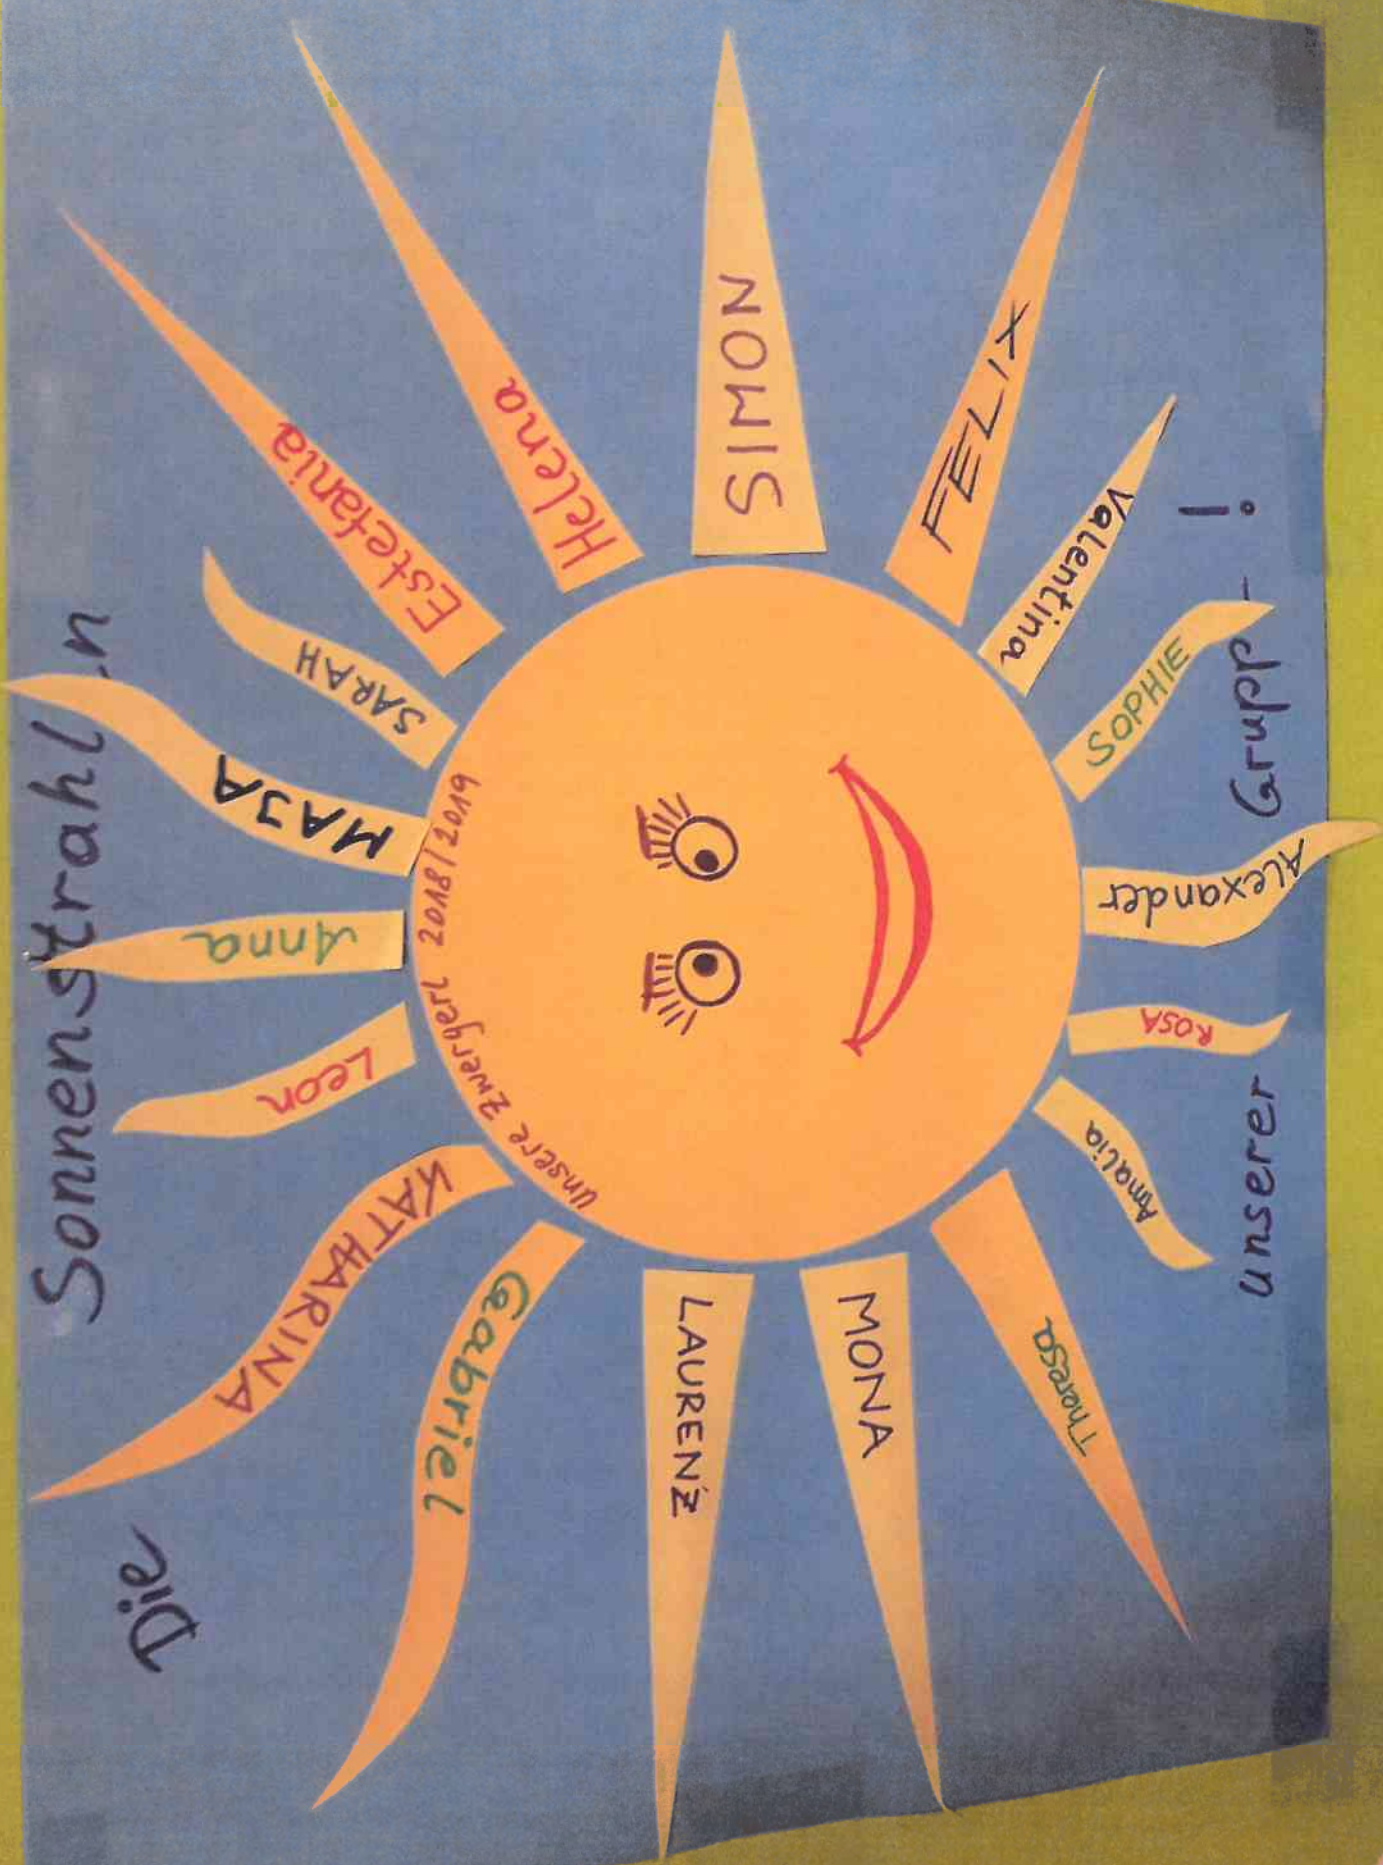 Die Sonnenstrahl-n
unserer Grupp-!
Unsere Zwergerl 2018/2019
Gabriel
KATHARINA
Leon
Anna
MAJA
SARAH
Estefania
Helena
SIMON
FELIX
Valentina
SOPHIE
Alexander
ROSA
Amalia
Theresa
MONA
LAURENZ